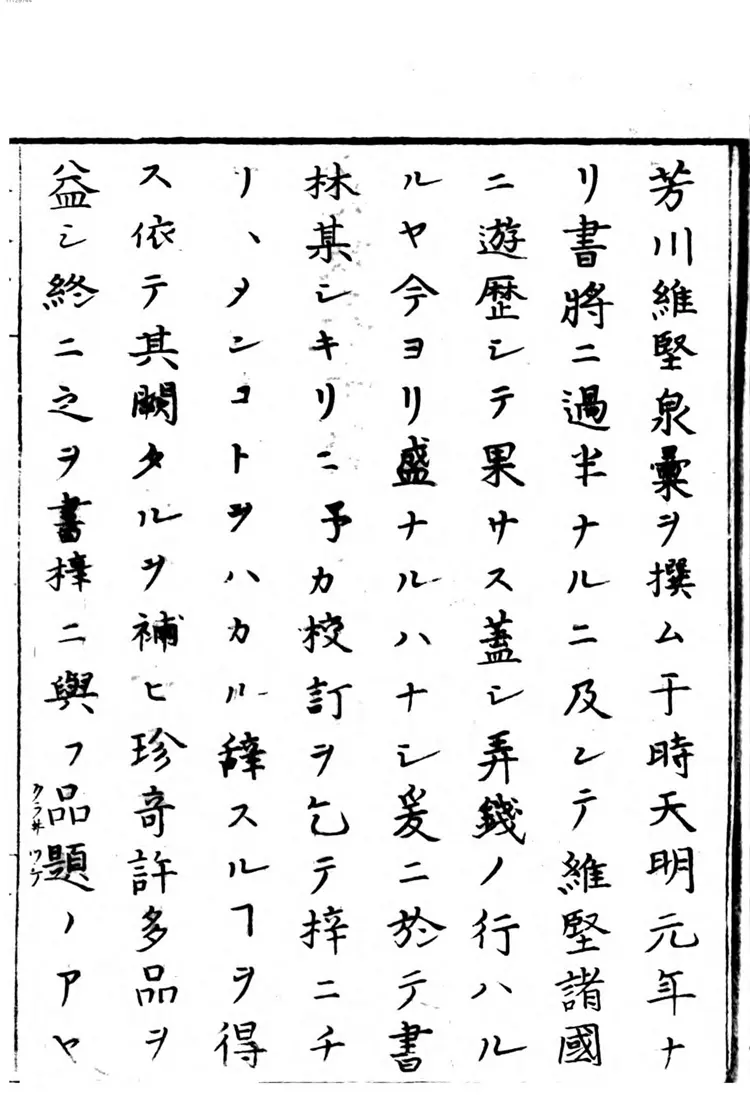 芳川維堅泉彙ヲ撰ム于時天明元年ナ
リ書將ニ過半ナルニ及ンテ維堅諸國
ニ遊歴シテ果サス蓋シ弄錢ノ行ハル
ルヤ今ヨリ盛ナルハナシ爰ニ於テ書
林某シキリニ予カ校訂ヲ乞テ梓ニチ
リヽメンコトヲハカル辞スルヿヲ得
ス依テ其闕タルヲ補ヒ珍奇許多品ヲ
益シ終ニ之ヲ書梓ニ與フ品題ノアヤ
クラ井ツケ